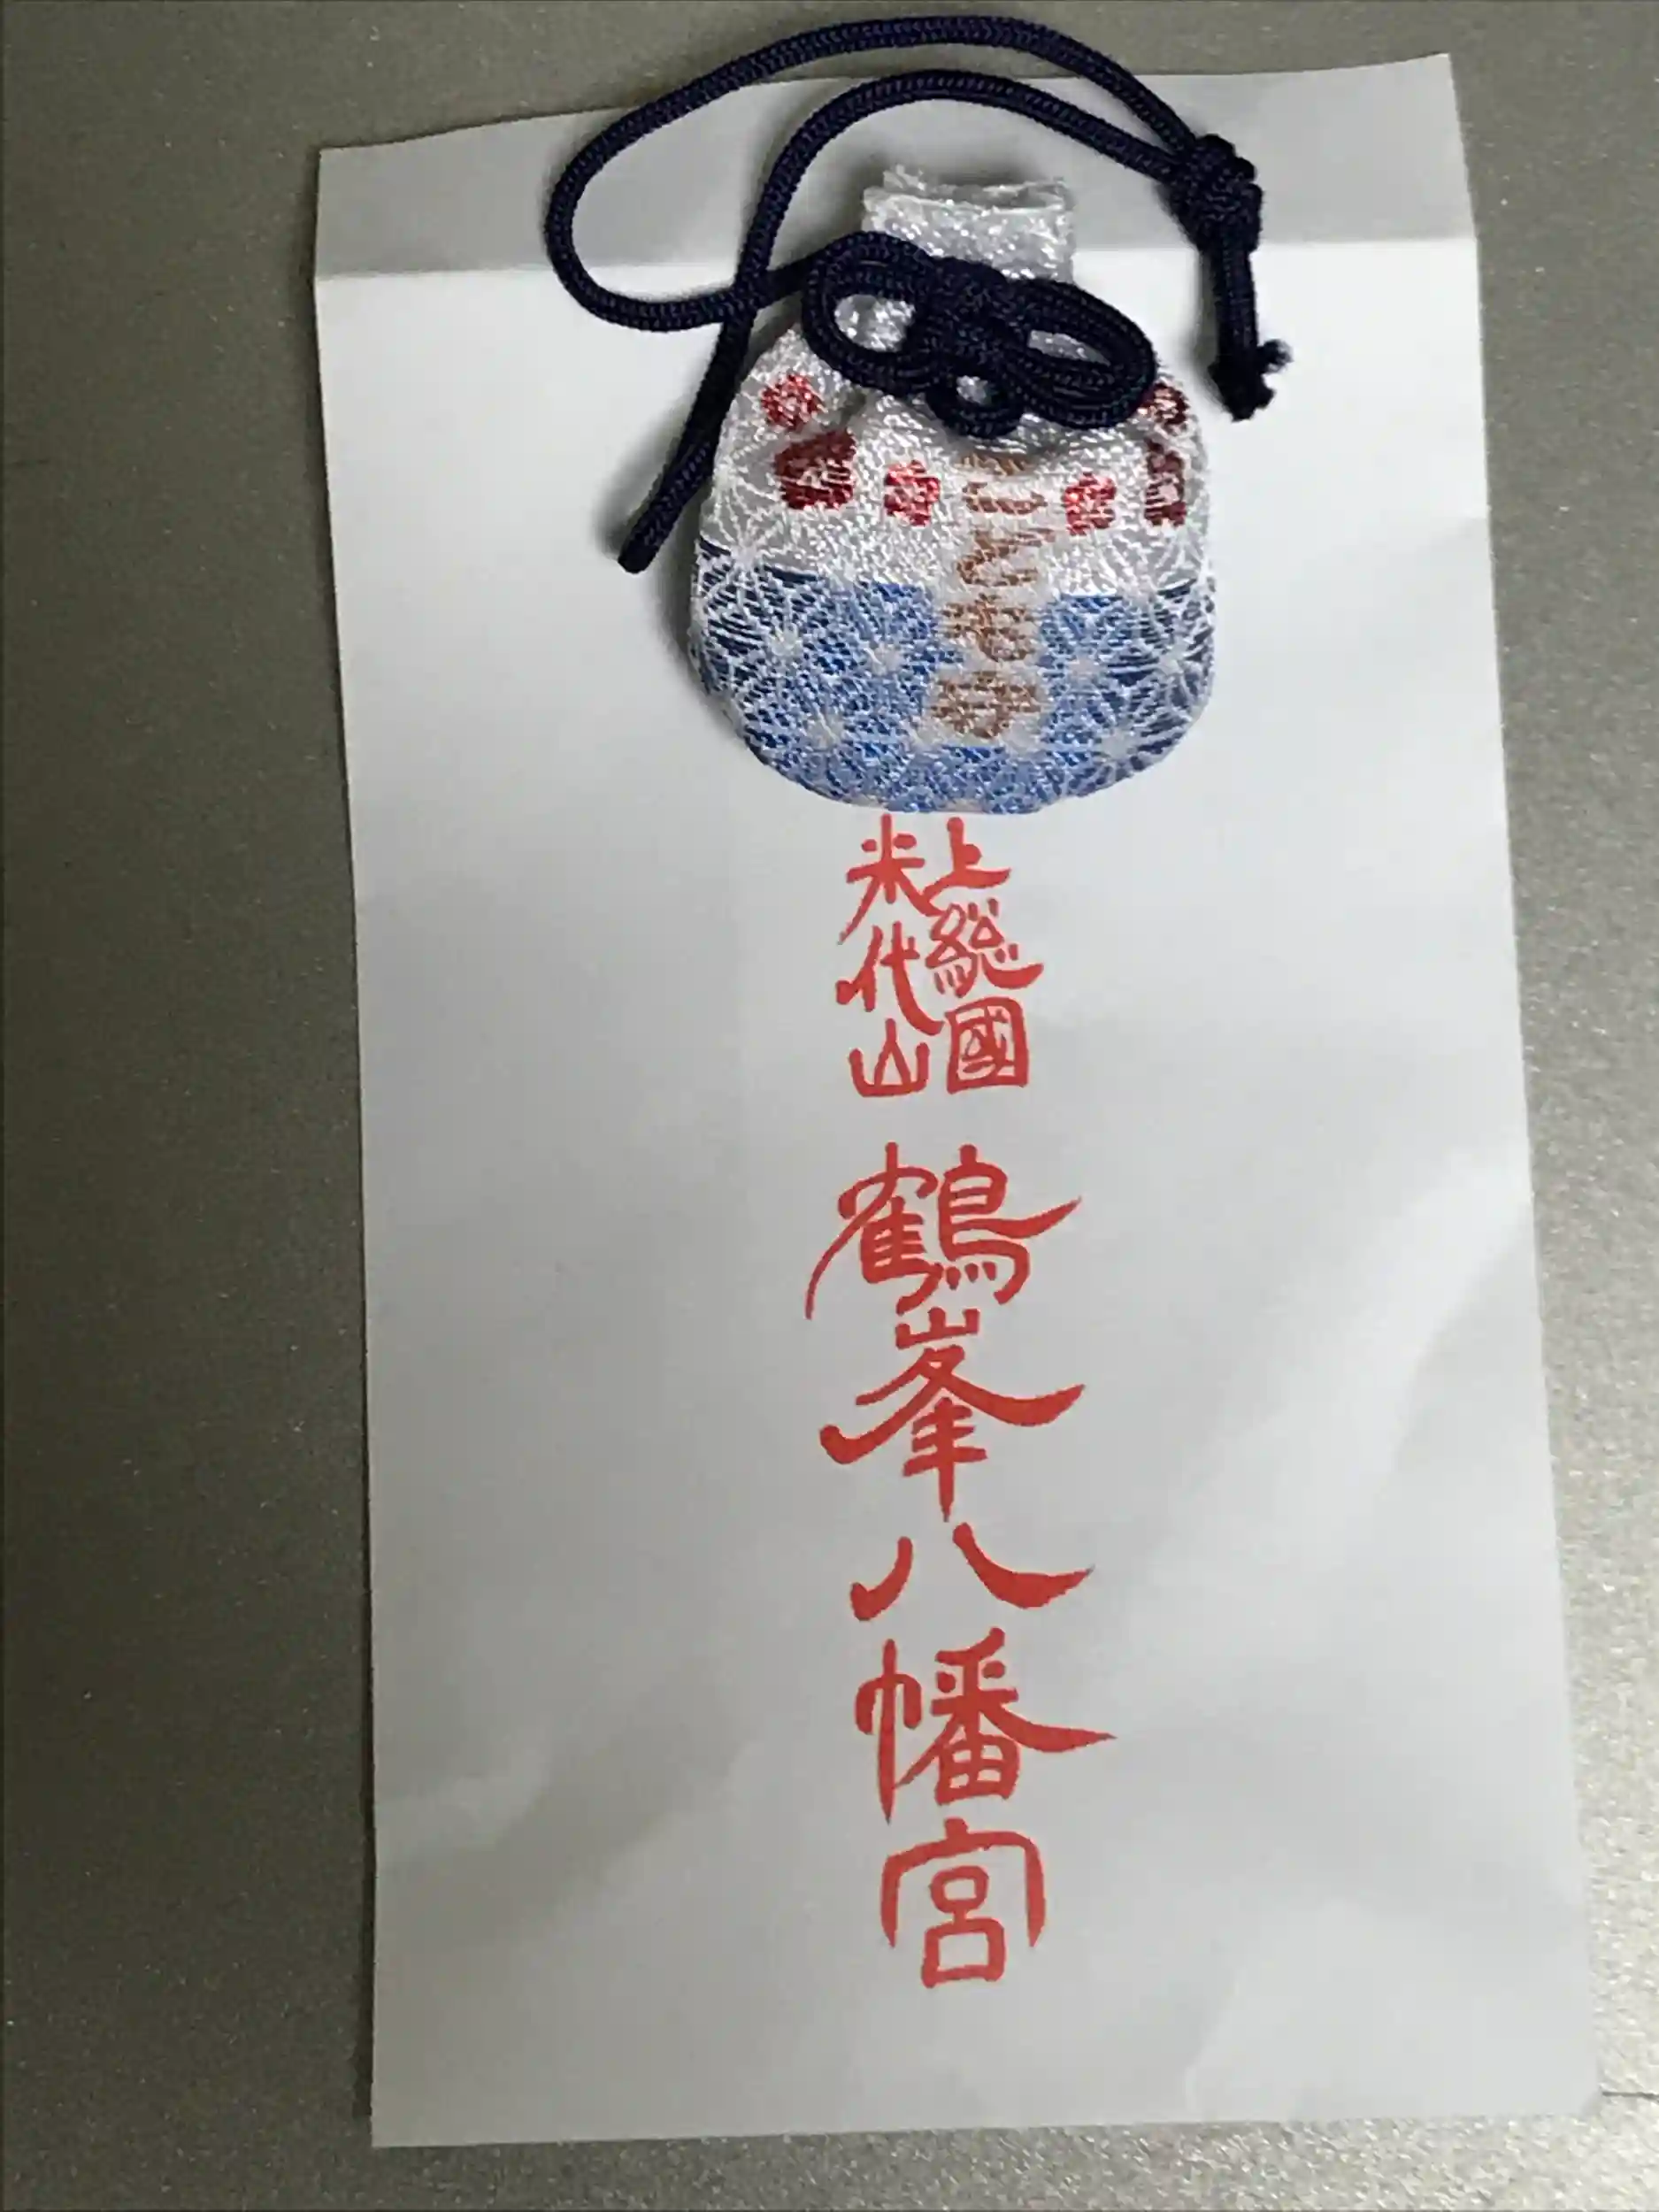 上総國
米代山
鶴峯八幡宮
守